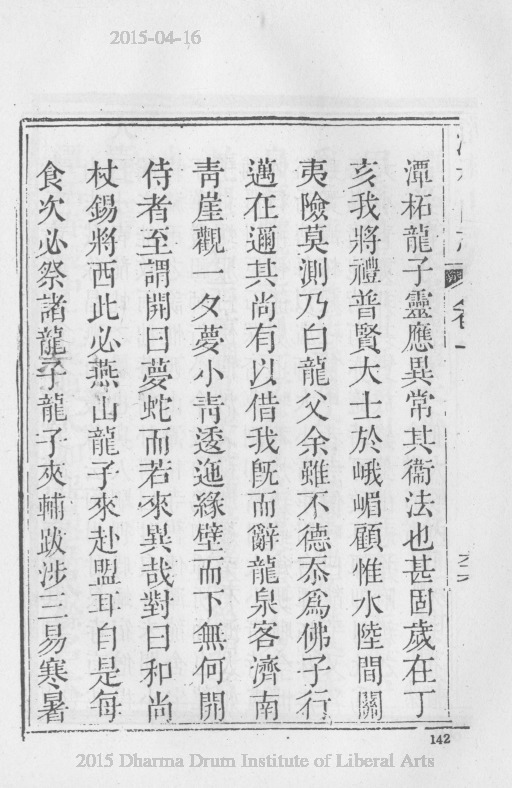 2015-04-16
潭柘龍子靈應異常其衞法也甚固歲在丁
亥我將禮普賢大士於峨嵋顧惟水陸間關
夷險莫測乃白龍父余雖不德忝爲佛子行
邁在邇其尚有以借我旣而辭龍泉客濟南
靑崖觀一夕夢小靑逶迤緣壁而下無何開
侍者至謂開曰夢蛇而若來異哉對曰和尚
杖錫將西此必燕山龍子來赴盟耳自是每
食次必祭諸龍子龍子夾輔跋涉三易寒暑
142
2015 Dharma Drum Institute of Liberal Arts